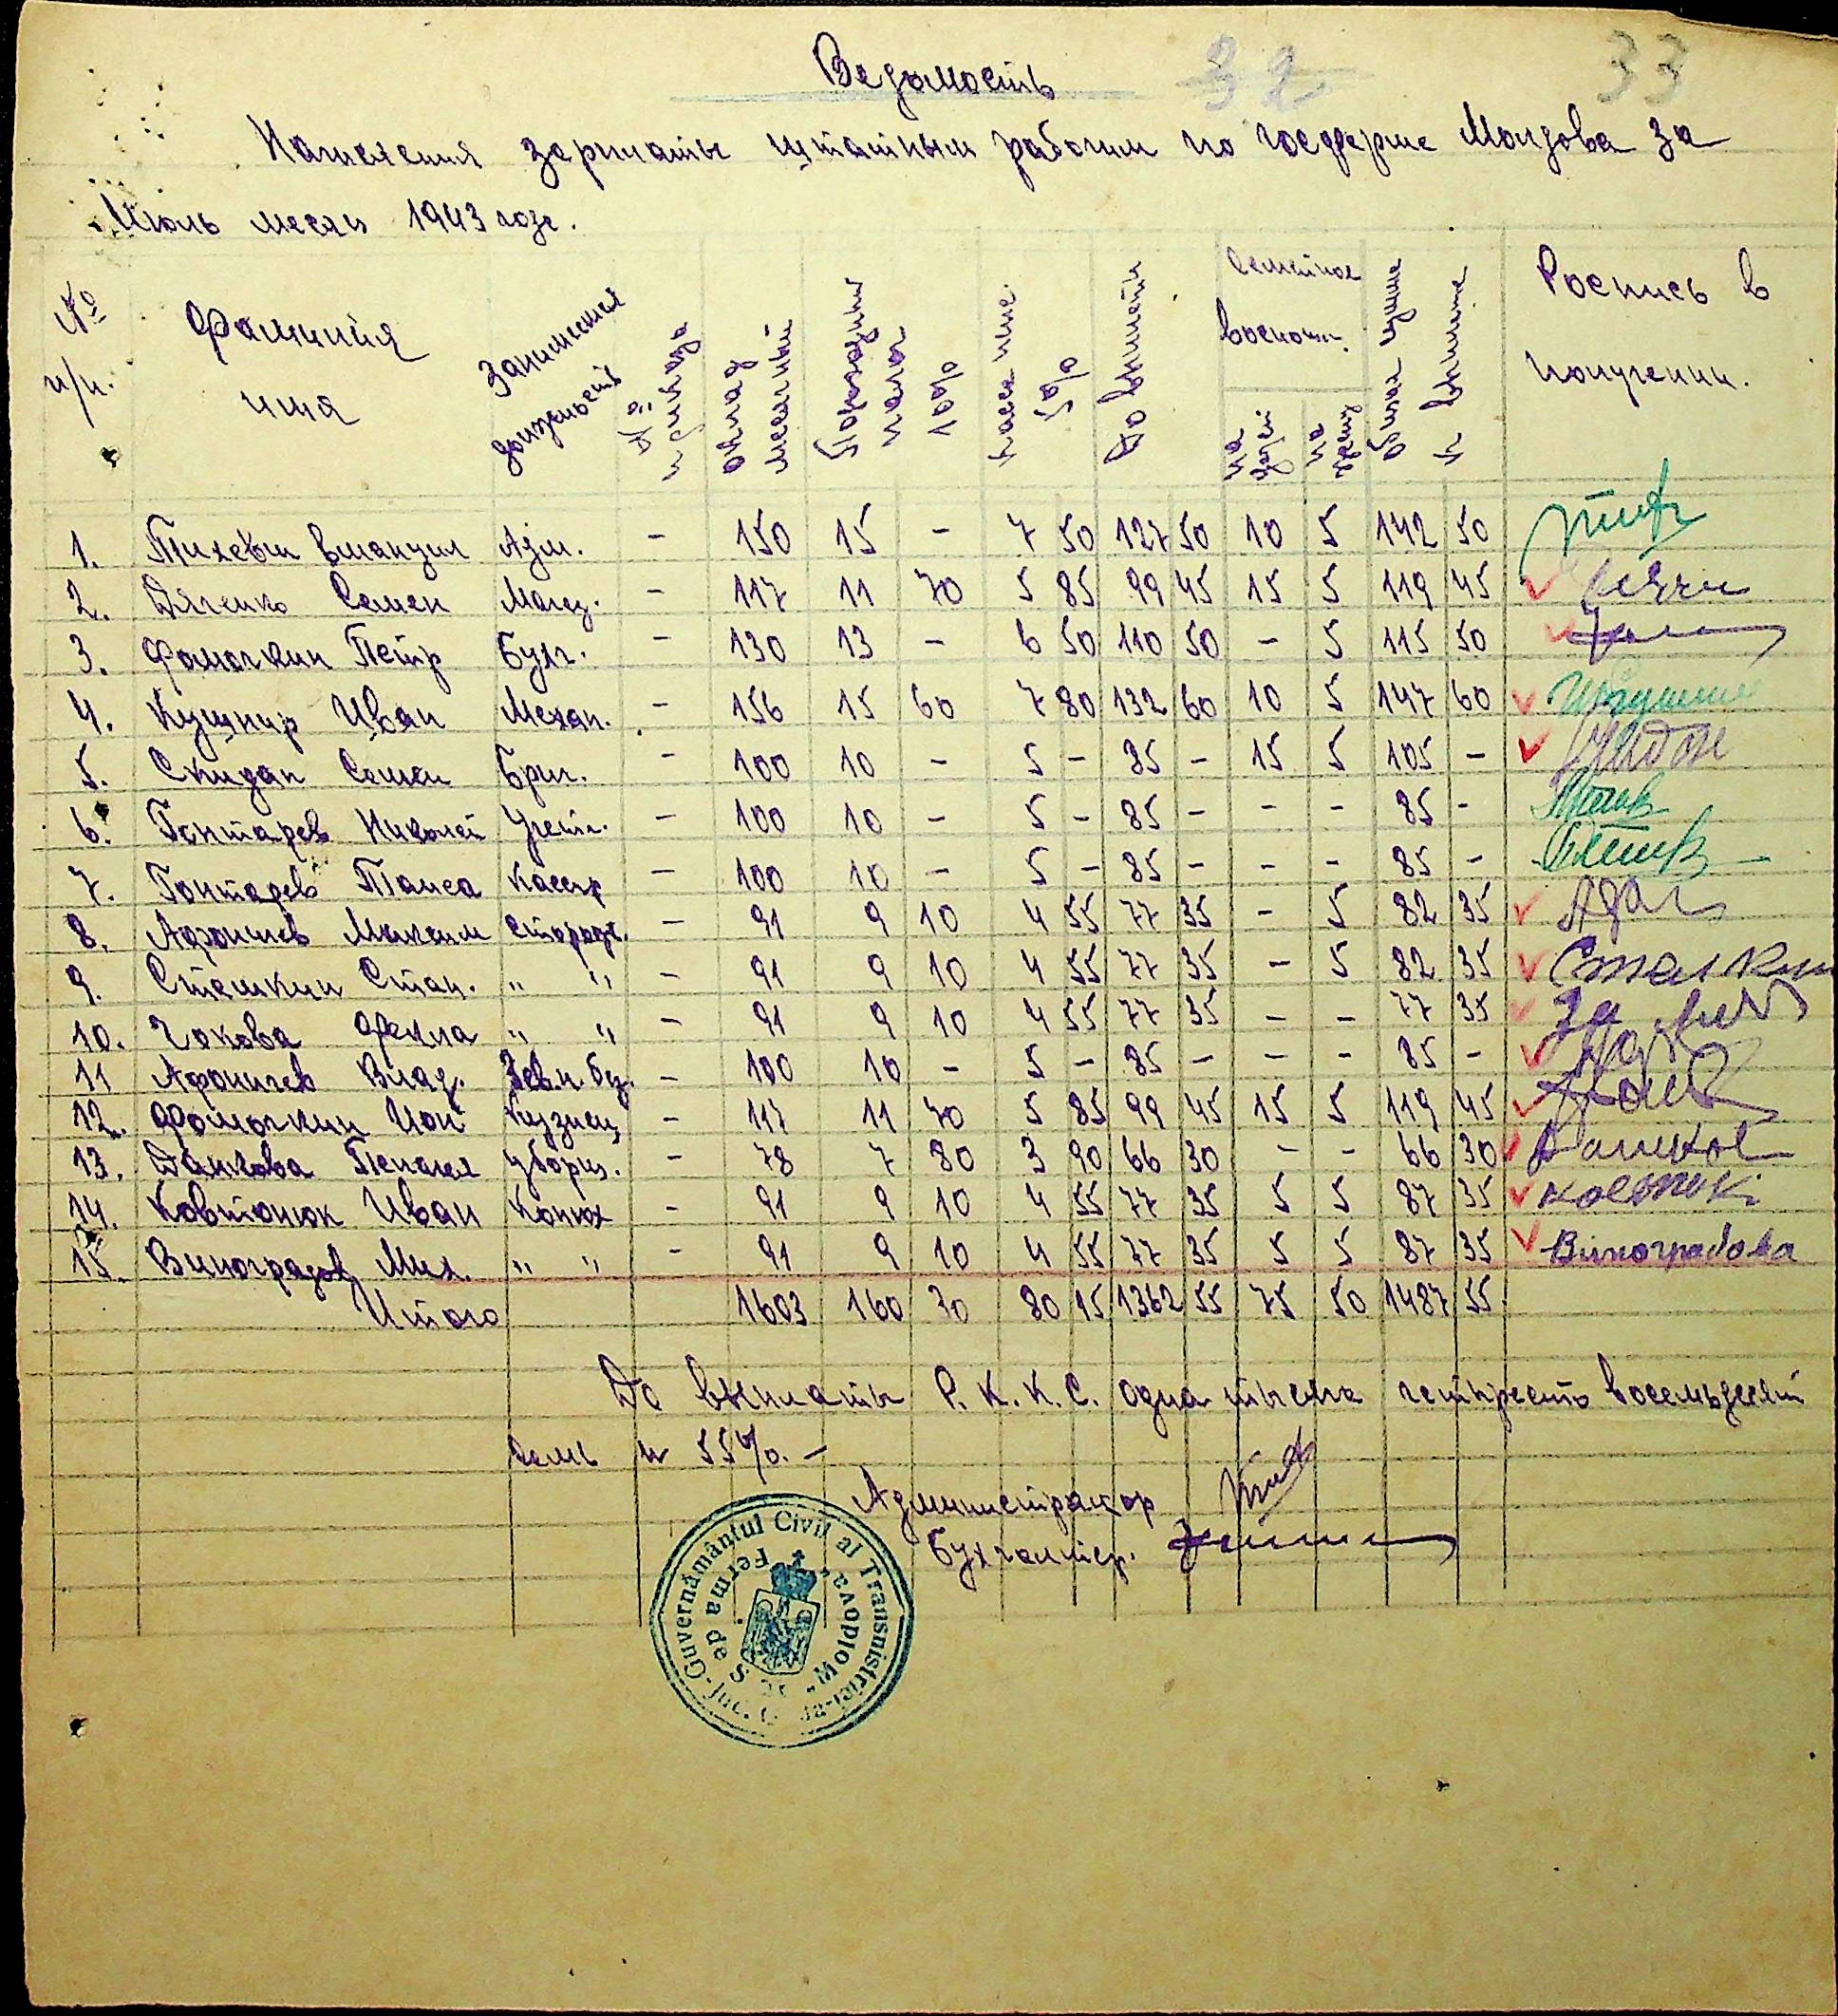 Ведомость 32 33
Начисления зарплаты штатным рабочим по госферме Молдова за
Июль месяц 1943 года.
№ п/п. Фамилия имя Занимаемая должность № приказа оклад месячный Подоходный налог 10% касса 5% До выплаты Семейное на детей на жену Общая сумма к выплате Роспись в получении.
1. Вмануил Адм. – 150 15 – 7 50 127 50 10 5 142 50
2. Дяченко Семен Магаз. – 117 11 70 5 85 99 45 15 5 119 45
3. Фомочкин Петр Бухг. – 130 13 – 6 50 110 50 – 5 115 50
4. Кушнир Иван Механ. – 156 15 60 7 80 132 60 10 5 147 60
5. Скидан Семен Бриг. – 100 10 – 5 – 85 – 15 5 105 –
6. Гонтарев Николай Учетч. – 100 10 – 5 – 85 – – – 85 –
7. Гонтарев Таиса Кассир – 100 10 – 5 – 85 – – – 85 –
8. Афоничев Максим сторож. – 91 9 10 4 55 77 35 – 5 82 35
9. Сташкин Стап. " " – 91 9 10 4 55 77 35 – 5 82 35 Сташкин
10. Чокова Фекла " " – 91 9 10 4 55 77 35 – – 77 35
11 Афоничев Влад. – 100 10 – 5 – 85 – – – 85 –
12. Фомочкин Ион Кузнец – 117 11 70 5 85 99 45 15 5 119 45
13. Данкова Пелагея уборщ. – 78 7 80 3 90 66 30 – – 66 30
14. Ковтонюк Иван Конюх – 91 9 10 4 55 77 35 5 5 87 35
15. Виноградов Мих. " " – 91 9 10 4 55 77 35 5 5 87 35 Виноградова
Итого 1603 160 30 80 15 1362 55 75 50 1487 55
До выплаты Р.К.К.С. одна тысяча четыреста восемьдесят
семь и 55%. –
Администратор
Бухгалтер.
Guvernământul Civil al Transnistriei
Ferma de S "Moldova"